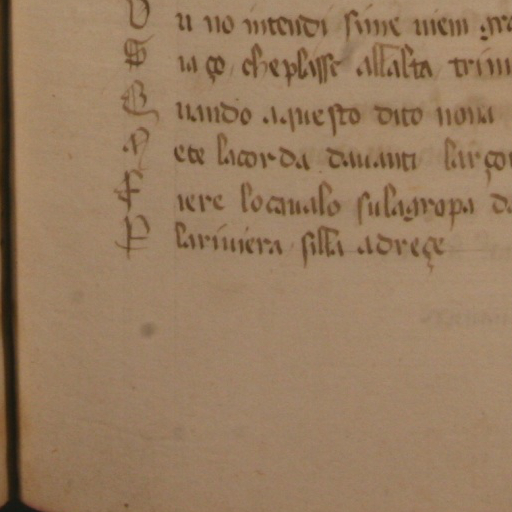 D u no intendi sime niem gra
S ia ço che plasse all alta trini
Q uando aquesto dito nona
M ete la corda davanti larço
F iere lo cavalo su la gropa da
P la riviera silla adreçe